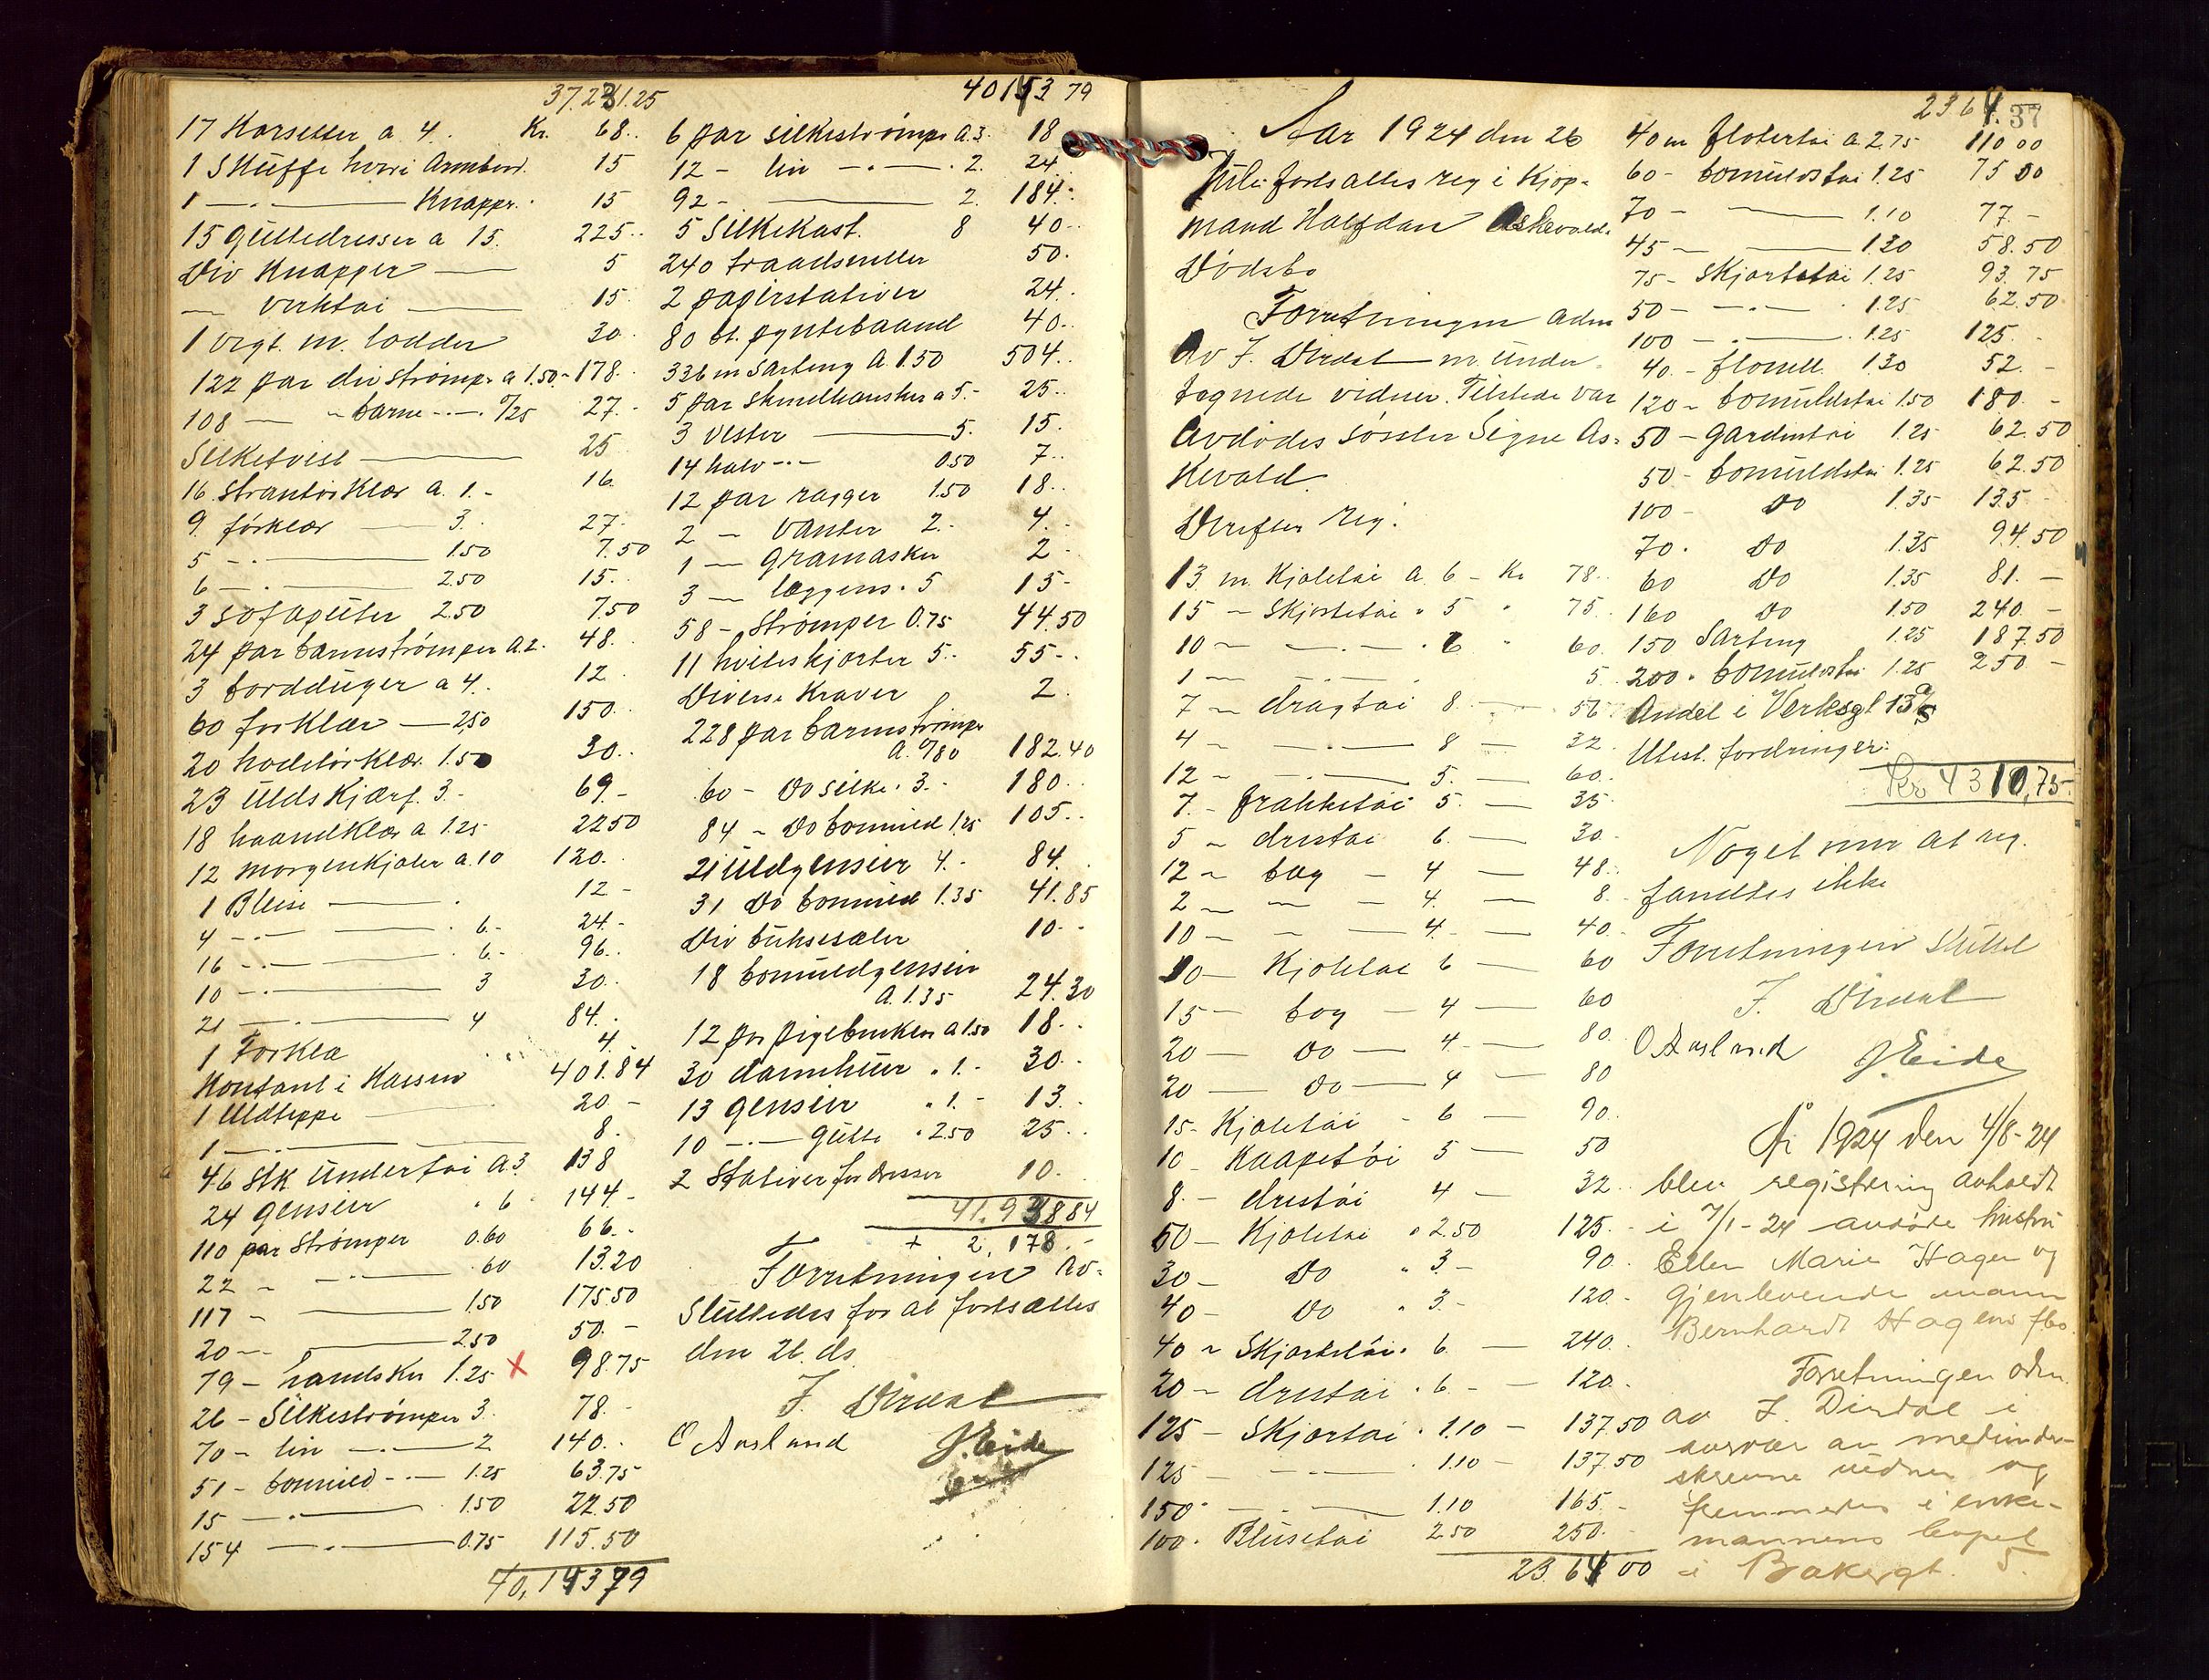 37.231.25
17 Korsetter a 4. Kr. 68..
1 Skuffe herre Armbend. 15
1 —.— Knapper. 15
15 Guttedresser a 15. 225..
Div Knapper — 5
— Verktøi — 15
1 vegt. m. lodder 30.
122 par div strømper a 1.50.- 178..
108 — - barne -.- 0/25 27.-
Silketvist — 25
16 strantørklær a. 1.- 16.
9 forklær — 3. 27.
5 -.- — 1.50 7.50
6 -.- — 2.50 15.
3 sofaputer 2.50 7.50
24 par barnestrømper a 2.- 48.
3 bordduger a 4.. 12.
60 forklær — 2,50 150.
20 hodetørklær 1.50 30..
23 Uldskjærf. 3.- 69.-
18 haandklær a 1.25 22.50
12 morgenkjoler a. 10 120.
1 Bluse — 12 -
4 -.- — 6.- 24.-
16 -.- — 6.- 96..
10 -.- — 3 30.
21 -.- — 4 84.
1 Forklæ 4.
Kontant i Kassen 401.84
1 Uldteppe — 20 -
1 -.- — 8.
46 stk Undertøi a 3. 138
24 gensere " 6 144.-
110 par strømper 0.60 66.-
22 - -.- 60 13.20
117 - — 1.50 175.50
20 - — 2.50 50.-
79 - handsker 1.25 x 98.75
26 - Silkestrømper 3. 78.-
70 - lin -.- 2 140..
51 - bomuld -.- 1.25 63.75
15 -.- — 1.50 22.50
154 -.- — 0.75 115.50
40,143 79
40143 79
6 par silkestrømper a 3. 18
12 - lin -.- 2. 24
92 - — 2. 184.-
5 Silkekast. 8 40..
240 traadsneller 50.
2 papirstativer 24.
80 bt. pyntebaand 40..
336 m Sarteng a. 1.50 504..
5 par skindhansker a 5.- 25..
3 Vester — 5. 15.
14 halv -.- 0.50 7..
12 par ragger 1.50 18..
2 - Vanter 2.- 4.-
1 — gramasker 2 -
3 — leggens . 5 15 -
58 - strømper 0.75 44.50
11 hvite skjorter 5.- 55..
Diverse Kraver 2.
228 par barnestrømper
a. 0/80 182.40
60 - Do silke . 3.- 180..
84 - Do bomuld 1.25 105..
21 Uldgenser 4.- 84.
31 Do bomuld 1.35 41.85
Div buksesæler 10.-
18 bomuldgenser
a. 1.35 24.30
12 par pigebenklær a 1.50 18..
30 damehuer . 1.- 30.-
13 gensere " 1.- 13.-
10 -.- gutte " 2.50 25..
2 Stativer for dresser 10.
41.938 84
+ 2,178.-
Forretningen av-
sluttedes for at fortsættes
den 26. ds.
J. Dirdal
O Aarsland J. Eide
Aar 1924 den 26
Juli fortsattes reg i Kjøp-
mand Halfdan Askevolds
Dødsbo
Forretningen adm
av J. Dirdal m. under
tegnede vidner. Tilstede var
Avdødes søster Signe As-
kevold.
Derefter reg:
13 m. Kjoletøi a. 6 - Kr 78..
15 - Skjortetøi " 5 " 75.
10 - -.- . 6 " 60.
1 - -.- 5.
7 - dragtøi 8. — 56.
4 - -.- 8 — 32.
12 - -.- 5. — 60.
7. - frakketøi 5. — 35.
5 - drestøi 6. — 30.
12 - tøy - 4 — 48..
2 - — - 4. — 8.
10 - — 4. — 40.-
10 - Kjoletøi 6 — 60
15 - tøy - 4 — 60
20 — Do — 4 — 80.
20 — Do — 4 — 80
15 - Kjoletøi - 6 — 90.
10 - Kaapetøi 5 — 50
8. - drestøi 4 — 32.
50 - Kjoletøi " 2.50 125.-
30 - Do " 3.- 90.
40 - Do " 3.- 120.-
40 - Skjortetøi . 6. — 240.
20 - drestøi . 6. - — 120.
125 - Skjortøi . 1.10 - 137.50
125 - -.- . 1.10 - 137.50
150 - -.- 1.10 165.-
100 . Blusetøi 2.50 250.-
23.64 00
2364. 37
40 m flotertøi a. 2.75 110 00
60 - bomuldstøi 1.25 75 00
70 - — 1.10 77.-
45 - — 1.30 58.50
75 - Skjortetøi 1.25 93.75
50 - -.- 1.25 62.50
100 - -.- 1.25 125.-
40 - flonell. 1.30 52.-
120 - bomuldstøi 1.50 180.-
50 - gardintøi 1.25 62.50
50 - bomuldstøi 1.25 62.50
100 - Do 1.35 135.-
70 . Do 1.35 94.50
60 Do 1.35 81.-
160 Do 1.50 240.-
150 Sarteng 1.25 187.50
200 " bomuldstøi 1.25 250 -
Andel i Verksgt 13 a/s
Utest. fordringer:
Kr 4310,75.-
Noget mer at reg.
fandtes ikke
Forretningen sluttet
J. Dirdal
O Aarsland J. Eide
År 1924 den 4/8-24
blev registrering avholdt
i 7/1-24 avdøde hustru
Ellen Marie Hagen og
gjenlevende mann
Bernhardt Hagens fbo.
Forretningen adm.
av J. Dirdal i
nærvær av medunder-
skrevne vidner og
fremmedes i enke-
mannens bopel
i Bakergt. 5.